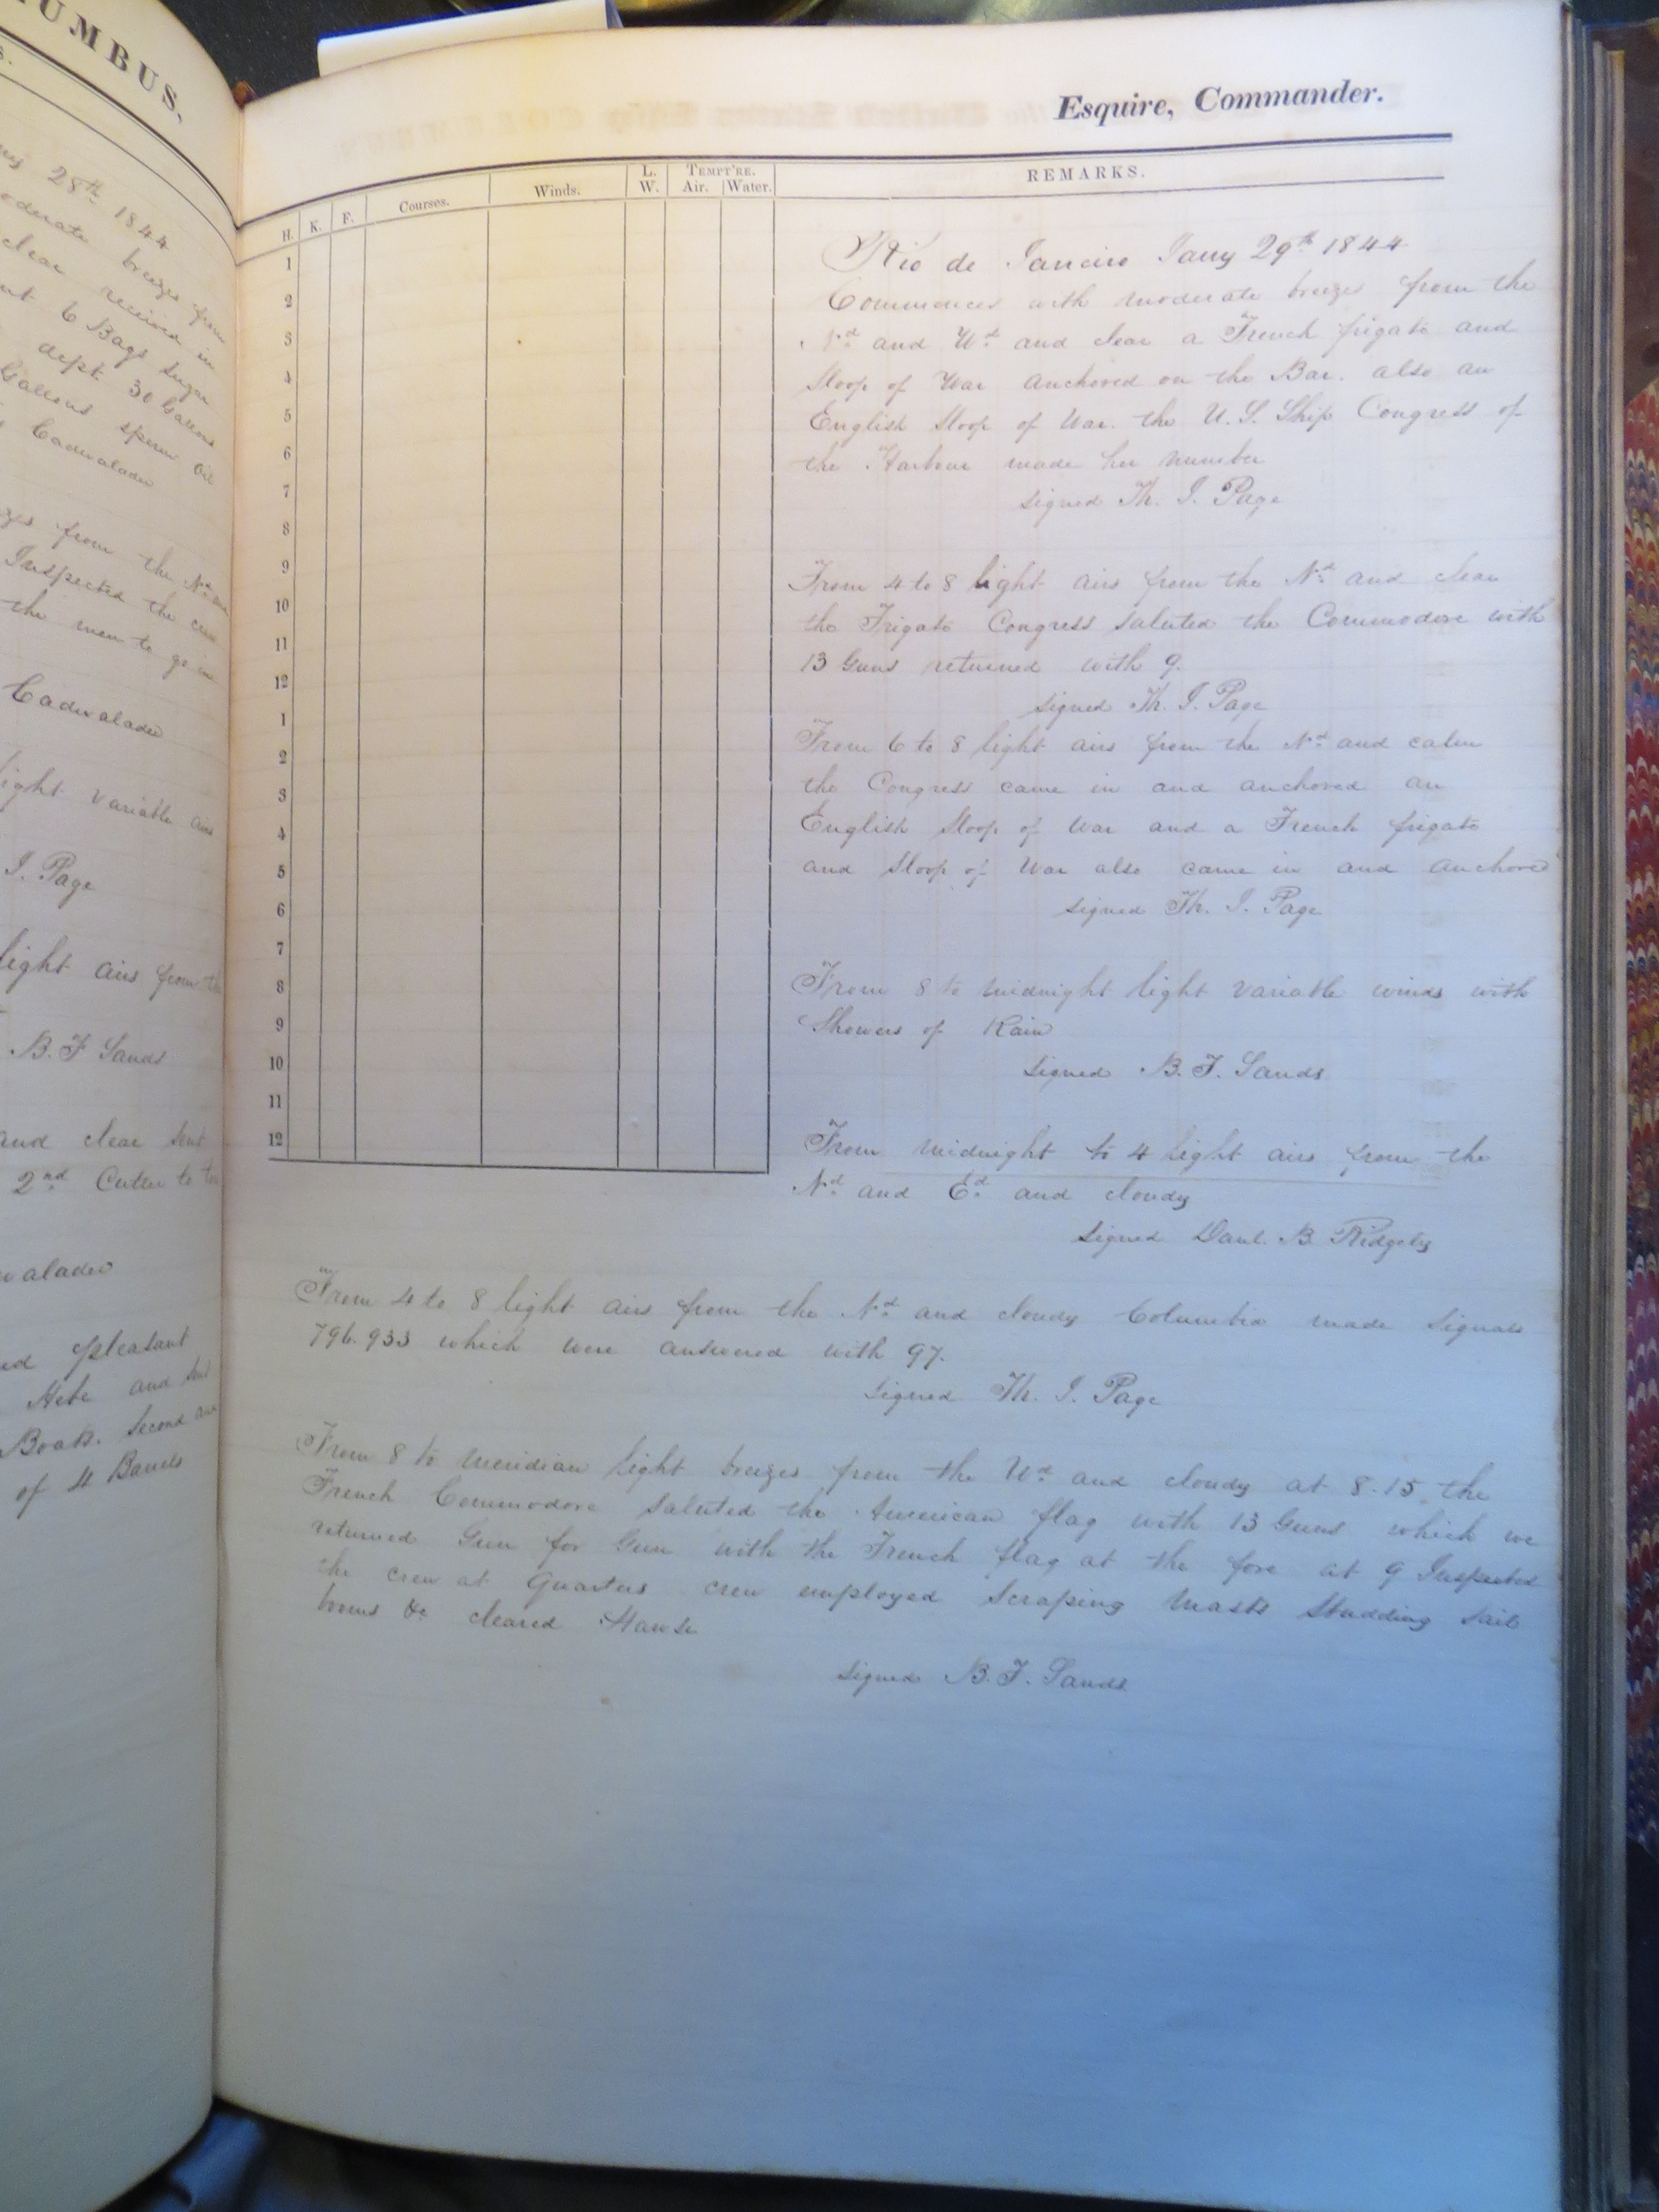 UMBUS.
28th 1844
moderate breezes from
clear received in
6 Bags sugar
dept. 30 Gallons
Gallons sperm Oil
Cadwalader
from the Nd and
Inspected the crew
the men to go in
Cadwalader
light variable airs
I. Page
light airs from the
B. F Sands
and clear sent
2nd Cutter to tow
alader
pleasant
Hebe and sent
Boats. Second and
of 4 Barrels
Esquire, Commander.
H. K. F. Courses. Winds. L. W. TEMPT'RE. Air. Water. REMARKS.
1
2
3
4
5
6
7
8
9
10
11
12
1
2
3
4
5
6
7
8
9
10
11
12
Rio de Janeiro Jany 29th 1844
Commences with moderate breezes from the
Nd and Wd and clear a French frigate and
Sloop of War anchored on the Bar. also an
English Sloop of War. the U.S. Ship Congress of
the Harbour made her number
signed Th. J. Page
From 4 to 8 light airs from the Nd and clear
the Frigate Congress saluted the Commodore with
13 Guns returned with 9.
signed Th. J. Page
From 6 to 8 light airs from the Nd and calm
the Congress came in and anchored an
English Sloop of War and a French frigate
and Sloop of War also came in and anchored
signed Th. J. Page
From 8 to midnight light variable winds with
Showers of Rain
signed B. F. Sands
From midnight to 4 light airs from the
Nd and Ed and cloudy
signed Danl. B. Ridgely
From 4 to 8 light airs from the Nd and cloudy Columbia made signals
796.933 which were answered with 97.
signed Th. J. Page
From 8 to meridian light breezes from the Wd and cloudy at 8.15 the
French Commodore saluted the American flag with 13 Guns which we
returned Gun for Gun with the French flag at the fore at 9 Inspected
the crew at Quarters crew employed Scraping Masts Studding sail
booms &c cleared Hawse
signed B. F. Sands